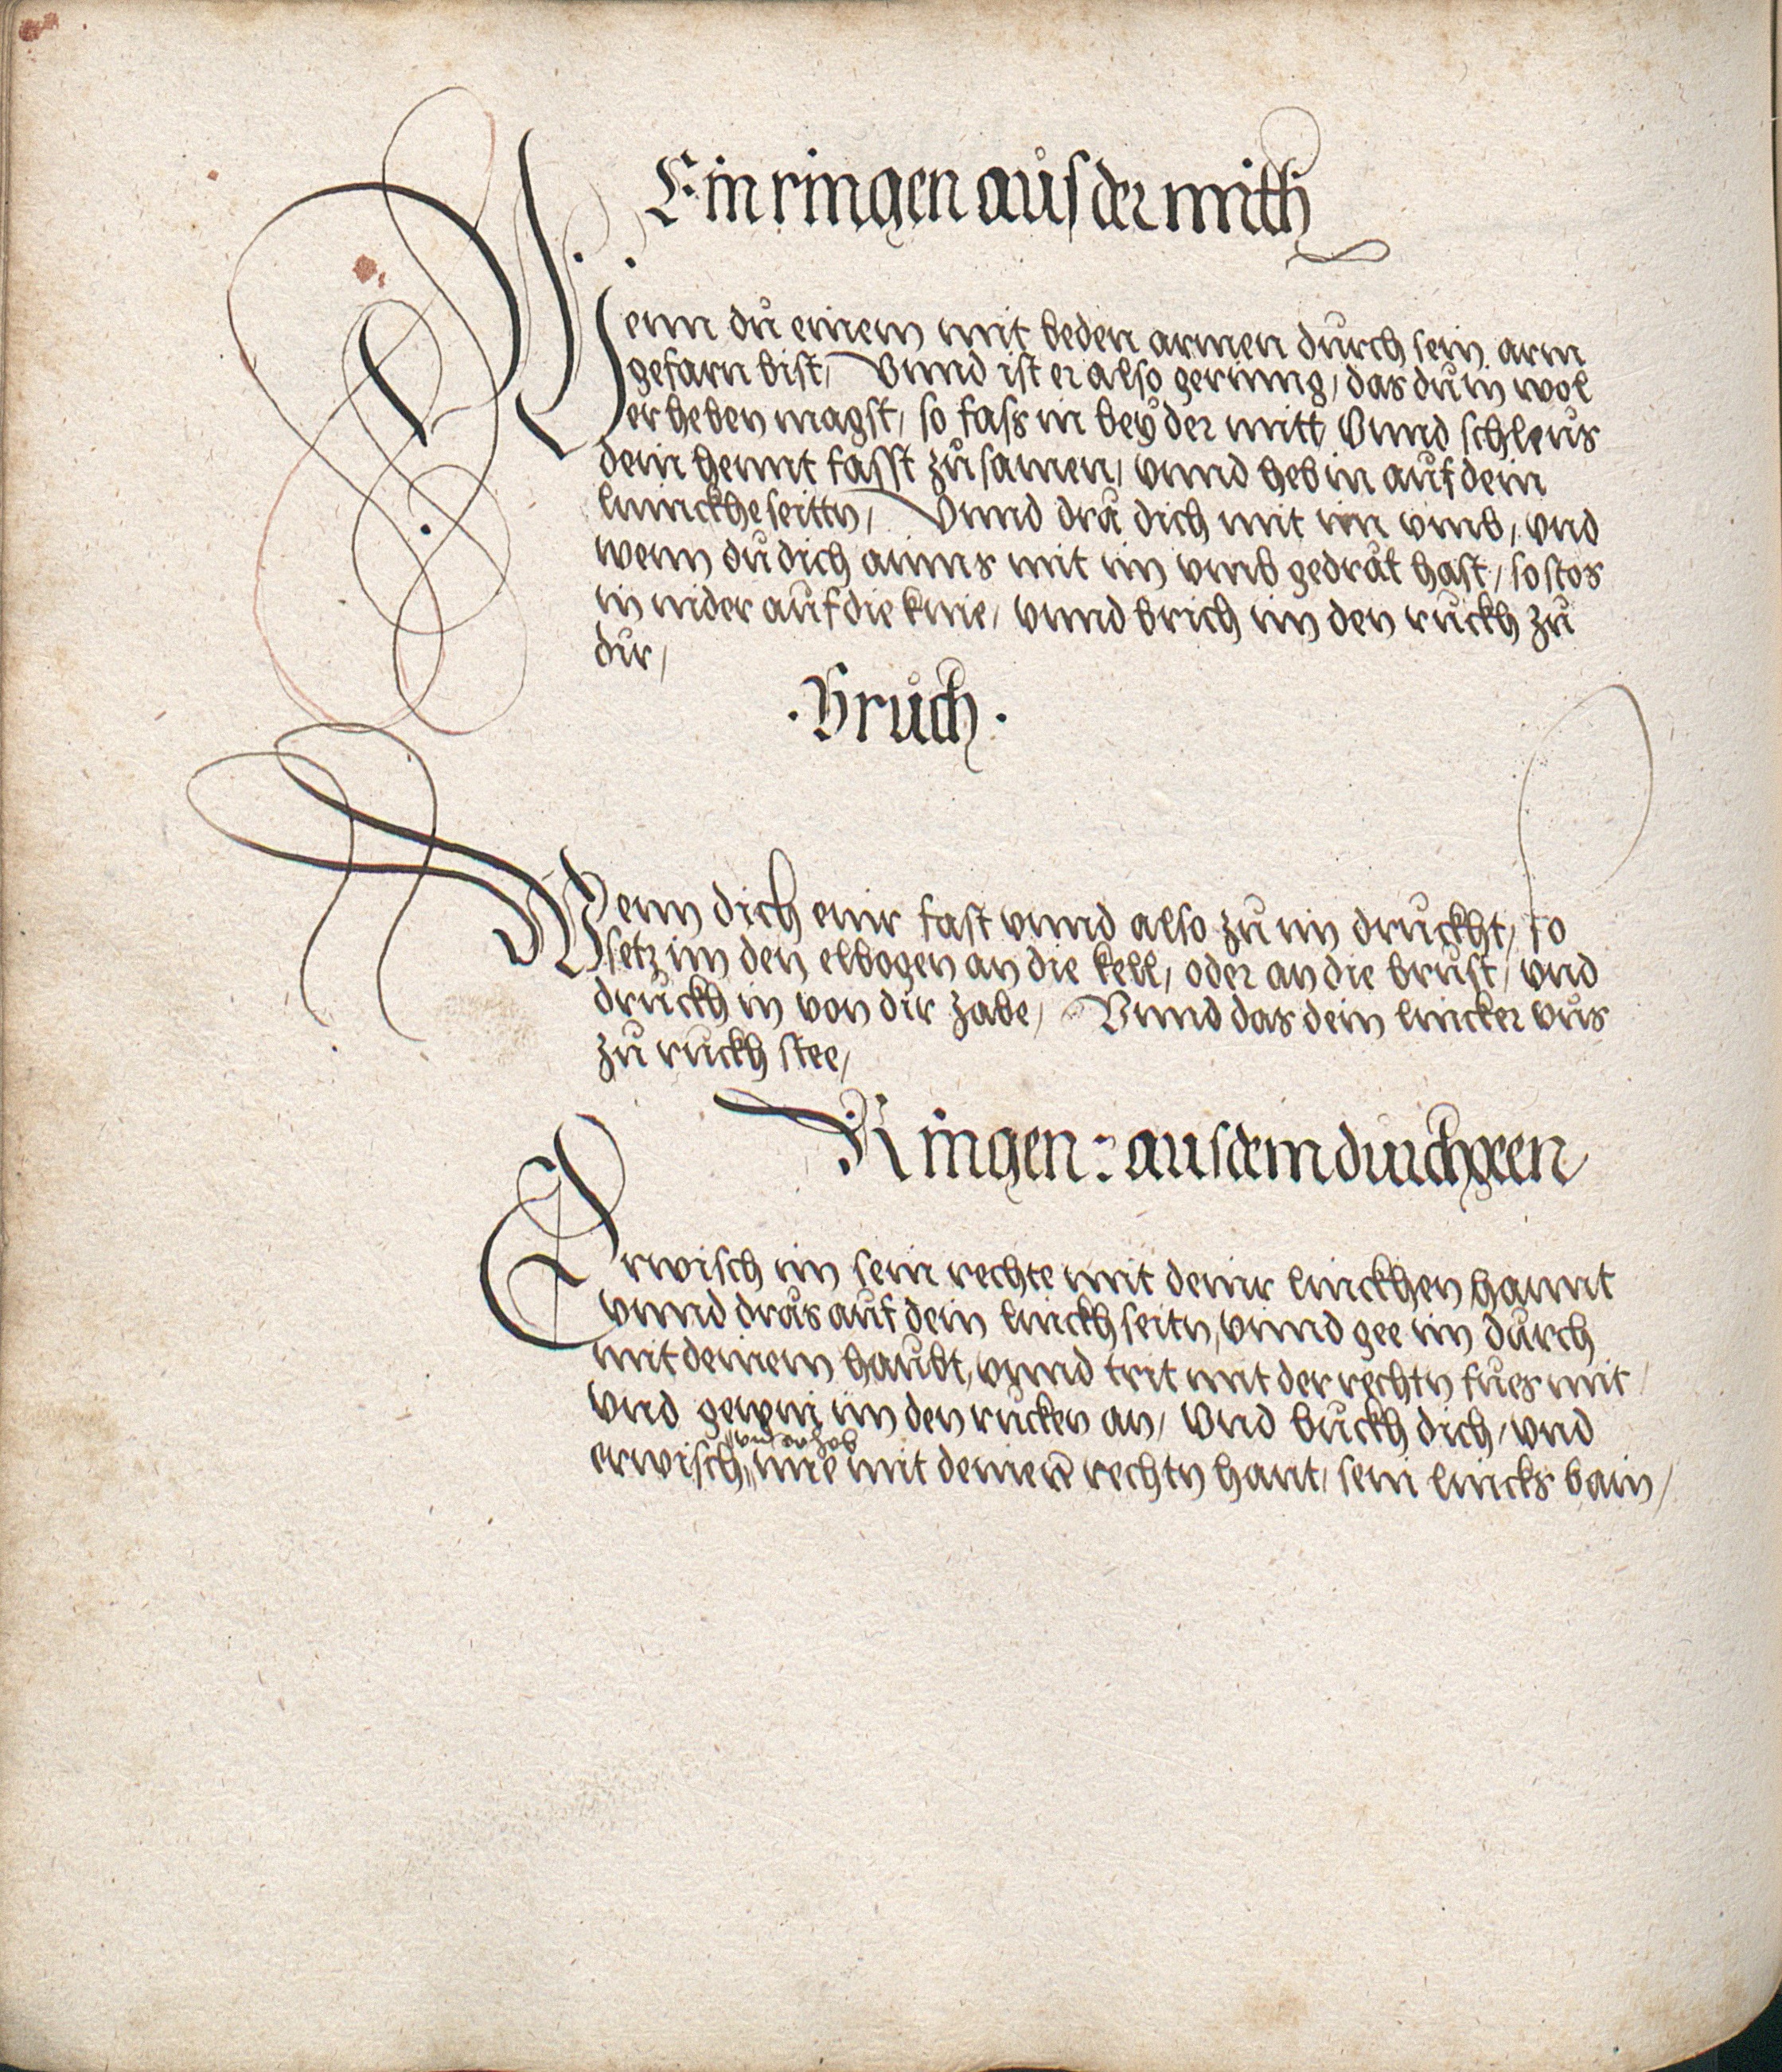 Ein ringen aus der mith
Wenn du einem mit beden armen durch sein arm
gefarn bist, Vnnd ist er also gerinng, das du in wol
erheben magst, so fass in bey der mitt, Vnnd schleus
dein hennt fasst zu samen, vnnd heb in auf dein
linnckhe seittn, Vnnd drä dich mit im vmb, vnd
wenn du dich ainns mit im vmb gedrät hast, so stos
in nider auf die knie, vnnd brich im den ruckh zu
dir,
Bruch
Wenn dich einr fast vnnd also zu im druckht, so
setz im den elbogen an die kell, oder an die brust, vnd
druckh in von dir habe, Vnnd das dein lincker vus
zu ruckh stee,
Ringen: aus dem durchgeen
Erwisch im sein rechte mit deinr linckhen hannt
vnnd dräs auf dein linckh seitn, vnnd gee im durch
mit deinem haubt, vnnd trit mit der rechtn fues mit
vnd gewin im den rucken an, Vnd buckh dich, vnd
erwisch, mit deinen rechtn hant, sein lincks bain,